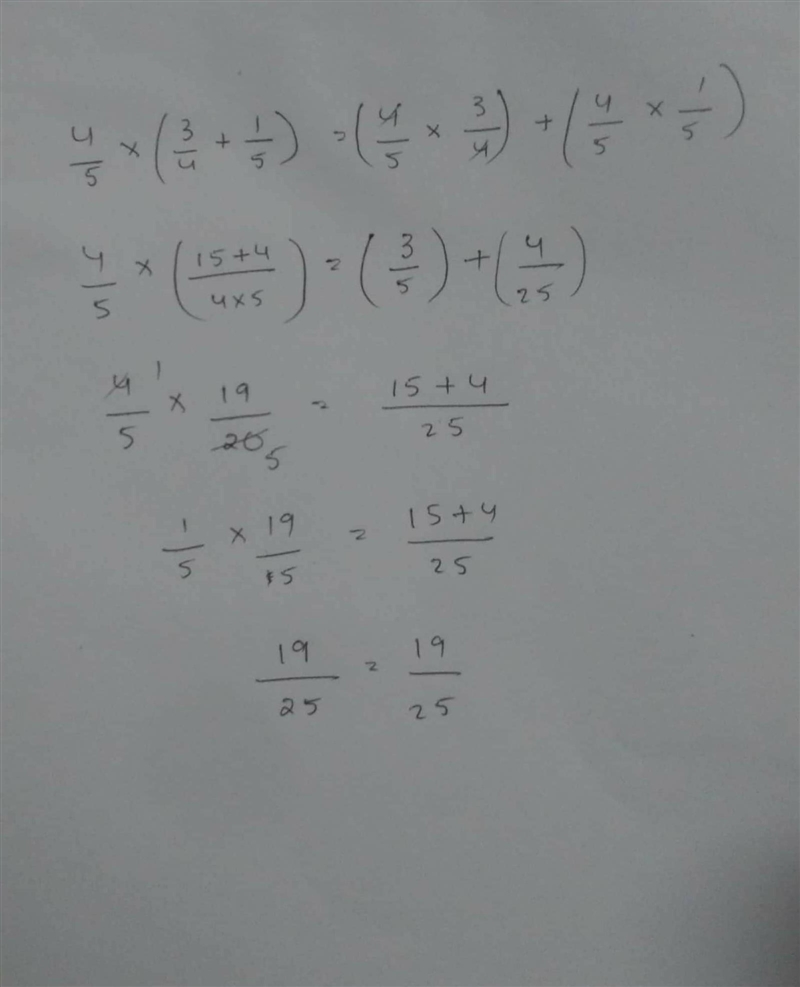 4/5 × (3/4 + 1/5) = (4/5 × 3/4) + (4/5 × 1/5)
4/5 × (15+4/4×5) = (3/5) + (4/25)
4 1/5 × 19/20 5 = 15+4/25
1/5 × 19/5 = 15+4/25
19/25 = 19/25